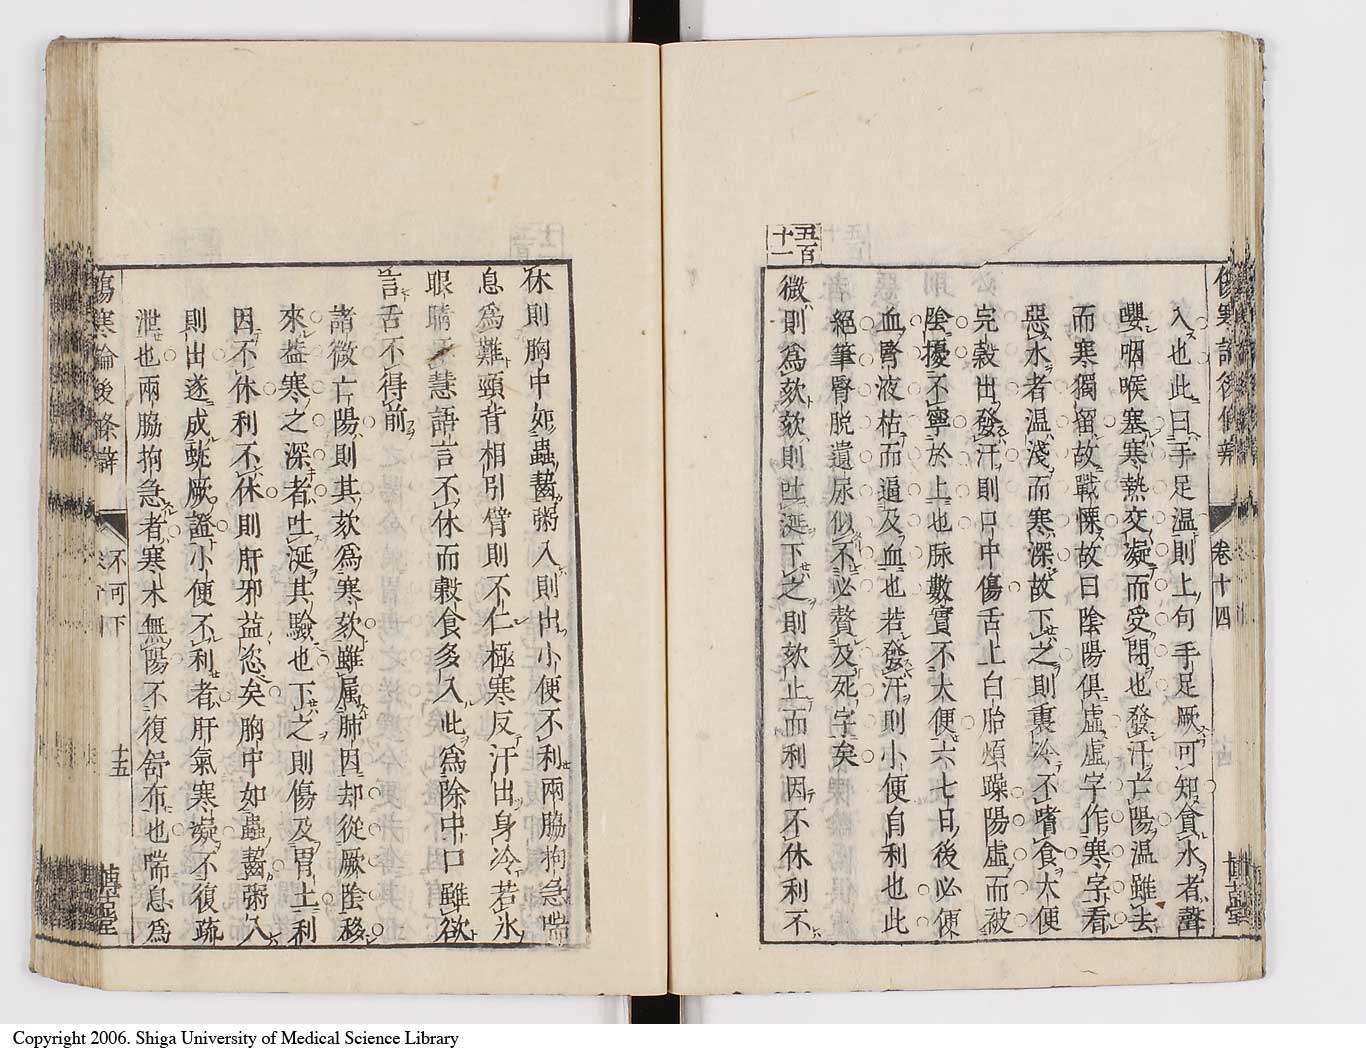 傷寒論後條辨
卷十四
博古堂
入也此曰手足温則上句手足厥可知貪水者聲
嚶咽喉塞寒熱交凝而受閉也發汗亡陽温雖去
而寒獨留故戰慄故曰陰陽俱虛虛字作寒字看
惡水者温淺而寒深故下之則裏冷不嗜食大便
完穀出發汗則口中傷舌上白胎煩躁陽虛而被
陰擾不寧於上也脉數實不大便六七日後必便
血腎液枯而逼及血也若發汗則小便自利也此
絕筆腎脱遺尿似不必贅及死字矣
五百十一
微則爲欬欬則吐涎下之則欬止而利因不休利不
休則胸中如蟲齧粥入則出小便不利兩脇拘急喘
息爲難頸背相引臂則不仁極寒反汗出身冷若氷
眼睛不慧語言不休而穀食多入此爲除中口雖欲
言舌不得前
諸微亡陽則其欬爲寒欬雖属肺因却從厥陰移
來葢寒之深者吐涎其驗也下之則傷及胃土利
因不休利不休則肝邪益恣矣胸中如蟲齧粥入
則出遂成蚘厥證小便不利者肝氣寒凝不復疏
泄也兩脇拘急者寒木無陽不復舒布也喘息爲
傷寒論後條辨
不可下
十五
博古堂
Copyright 2006. Shiga University of Medical Science Library